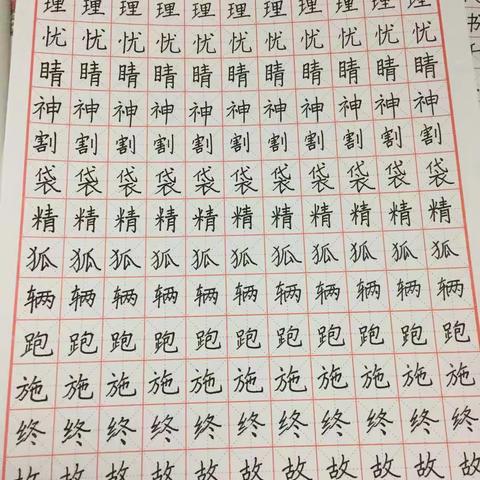 理理理理理理理理理理理
忧忧忧忧忧忧忧忧忧忧忧
睛睛睛睛睛睛睛睛睛睛睛
神神神神神神神神神神神
割割割割割割割割割割割
袋袋袋袋袋袋袋袋袋袋袋
精精精精精精精精精精精
狐狐狐狐狐狐狐狐狐狐狐
辆辆辆辆辆辆辆辆辆辆辆
跑跑跑跑跑跑跑跑跑跑跑
施施施施施施施施施施施
终终终终终终终终终终终
故故故故故故故故故故故
书